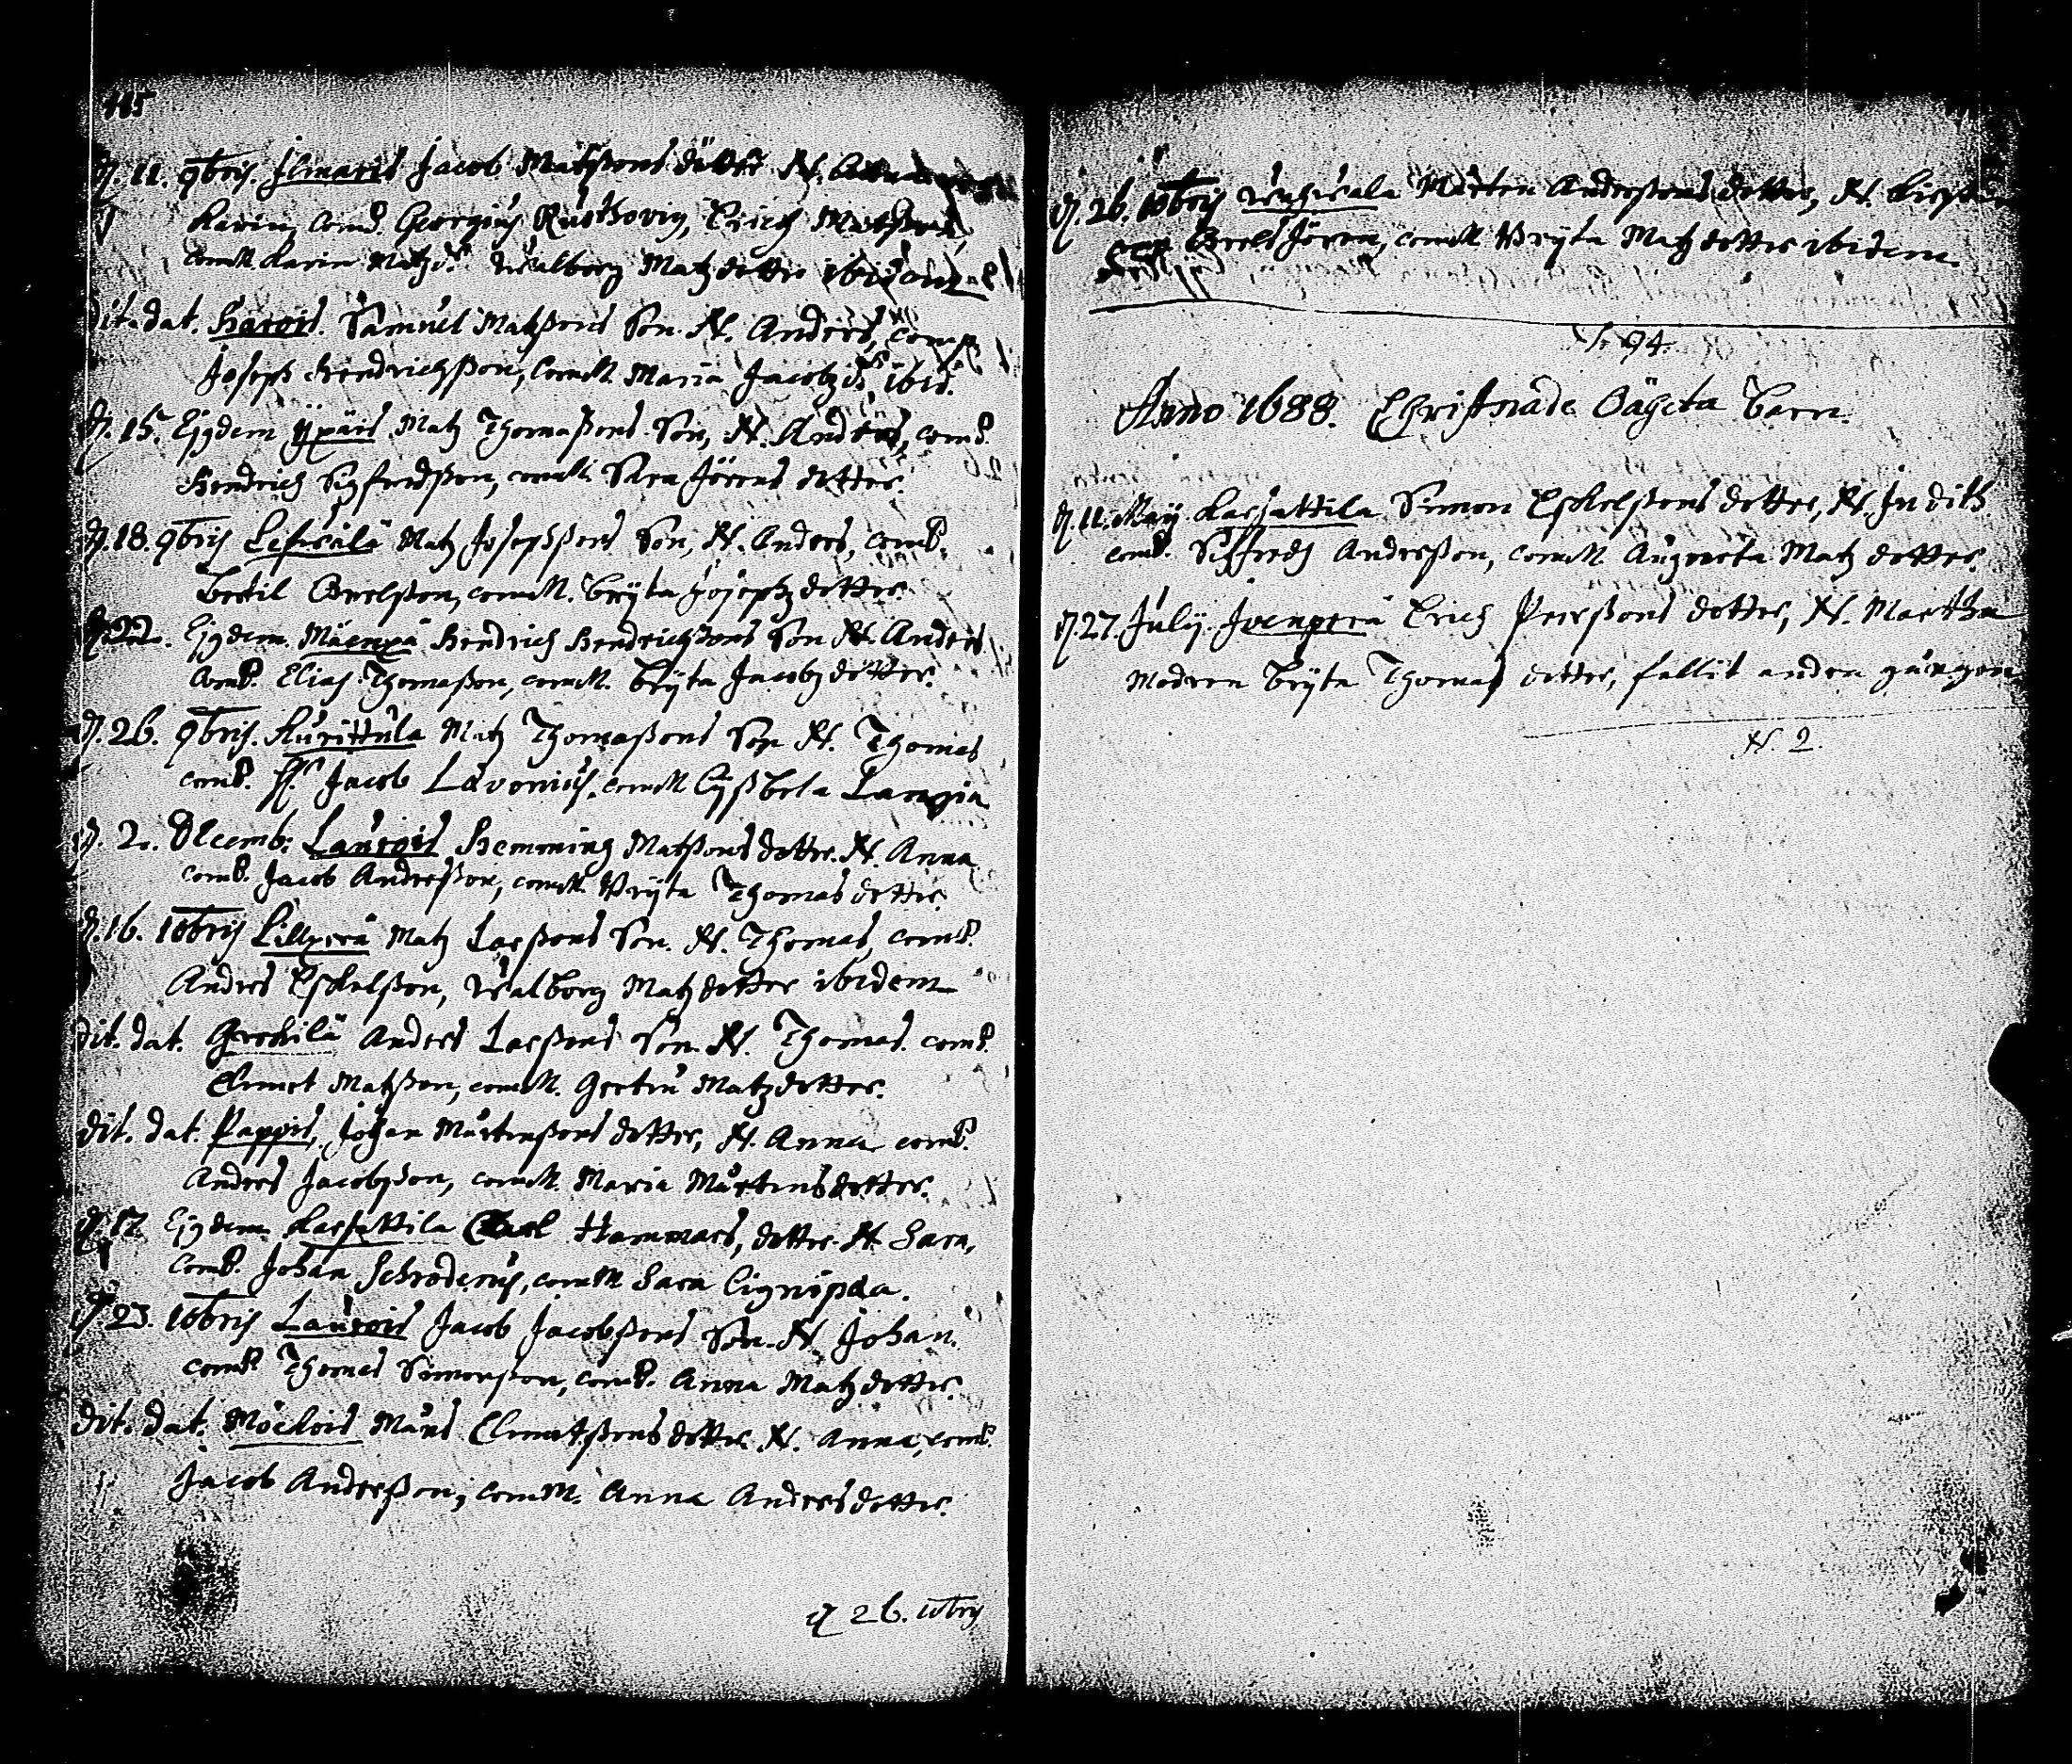 115
d. 11. 9bris. Ilmaris Jacob Matßons dotter N.
Karin, comP. Georgius Rusthovig, Erich Matßon,
comM. Karin Matzdr. Walborg Matzdotter ibidem
dit. dat. Harois. Samuel Matzßons Son. N. Anders, comP.
Joseph Hendrichßon, ComM. Maria Jacobzdr. ibid.
d. 15. Ejusdem Ypäis Matz Thomaßons Son, N. Anders, comP.
Hendrich Sigfredßon, comM. Sara Jörens dotter.
d. 18. 9bris Matz Josephßons Son, N. Anders, comP.
Bertil Brelßon, comM. Bryta Josephz dotter.
d. 22. Ejusdem. Mäenpä Hendrich Hendrichßons Son N. Anders
comP. Elias Thomaßon, comM. Bryta Jacobz dotter.
d. 26. 9bris. Kurittula Matz Thomaßons Son N. Thomas
comP. H. Jacob Lavonius, comM Lijßbeta Langia
d. 2. Decemb: Laurois Hemming Matßons dotter. N. Anna
comP. Jacob Andersßon, comM. Bryta Thomas dotter.
d. 16. 10bris Lillperä Matz Larßons Son. N. Thomas, comP.
Anders Eskelßon, Walborg Matz dotter ibidem
dit. dat. Gerckilä Anders Larßons Son. N. Thomas. comP.
Clemet Matßon, comM. Gertru Matzdotter.
dit. dat. Pappis, Johan Mårtenßons dotter, N. Anna comP.
Anders Jacobzson, comM. Maria Mårtensdotter.
d. 17 Ejusdem Karsattila Carl Hammars, dotter N. Sara,
ComP. Johan Schroderus, comM Sara Cignipæa.
d. 23. 10bris Laurois Jacob Jacobßons Son. N. Johan.
comP. Thomas Simonßon, comP. Anna Matz dotter.
dit. dat. Möckois Måns Clemetßons dotter N. Anna, comP.
Jacob Andersßon, ComM. Anna Anders dotter.
d 26. 10bris
d. 26. 10bris Mårten Anderßons dotter, N.
Brels Jören, comM Bryta Matz dotter ibidem.
N. 94.
Anno 1688. Christnade Oägeta Barn.
d. 11. Maij. Karsattila Simon Eskelßons dotter, N. Judith.
comP. Sigfredh Andersßon, comM Augneeta Matz dotter.
d. 27. Julij. Juenperä Erich Peerßons dotter, N. Martha
Modren Bryta Thomas dotter, fallit andra gången
N. 2.